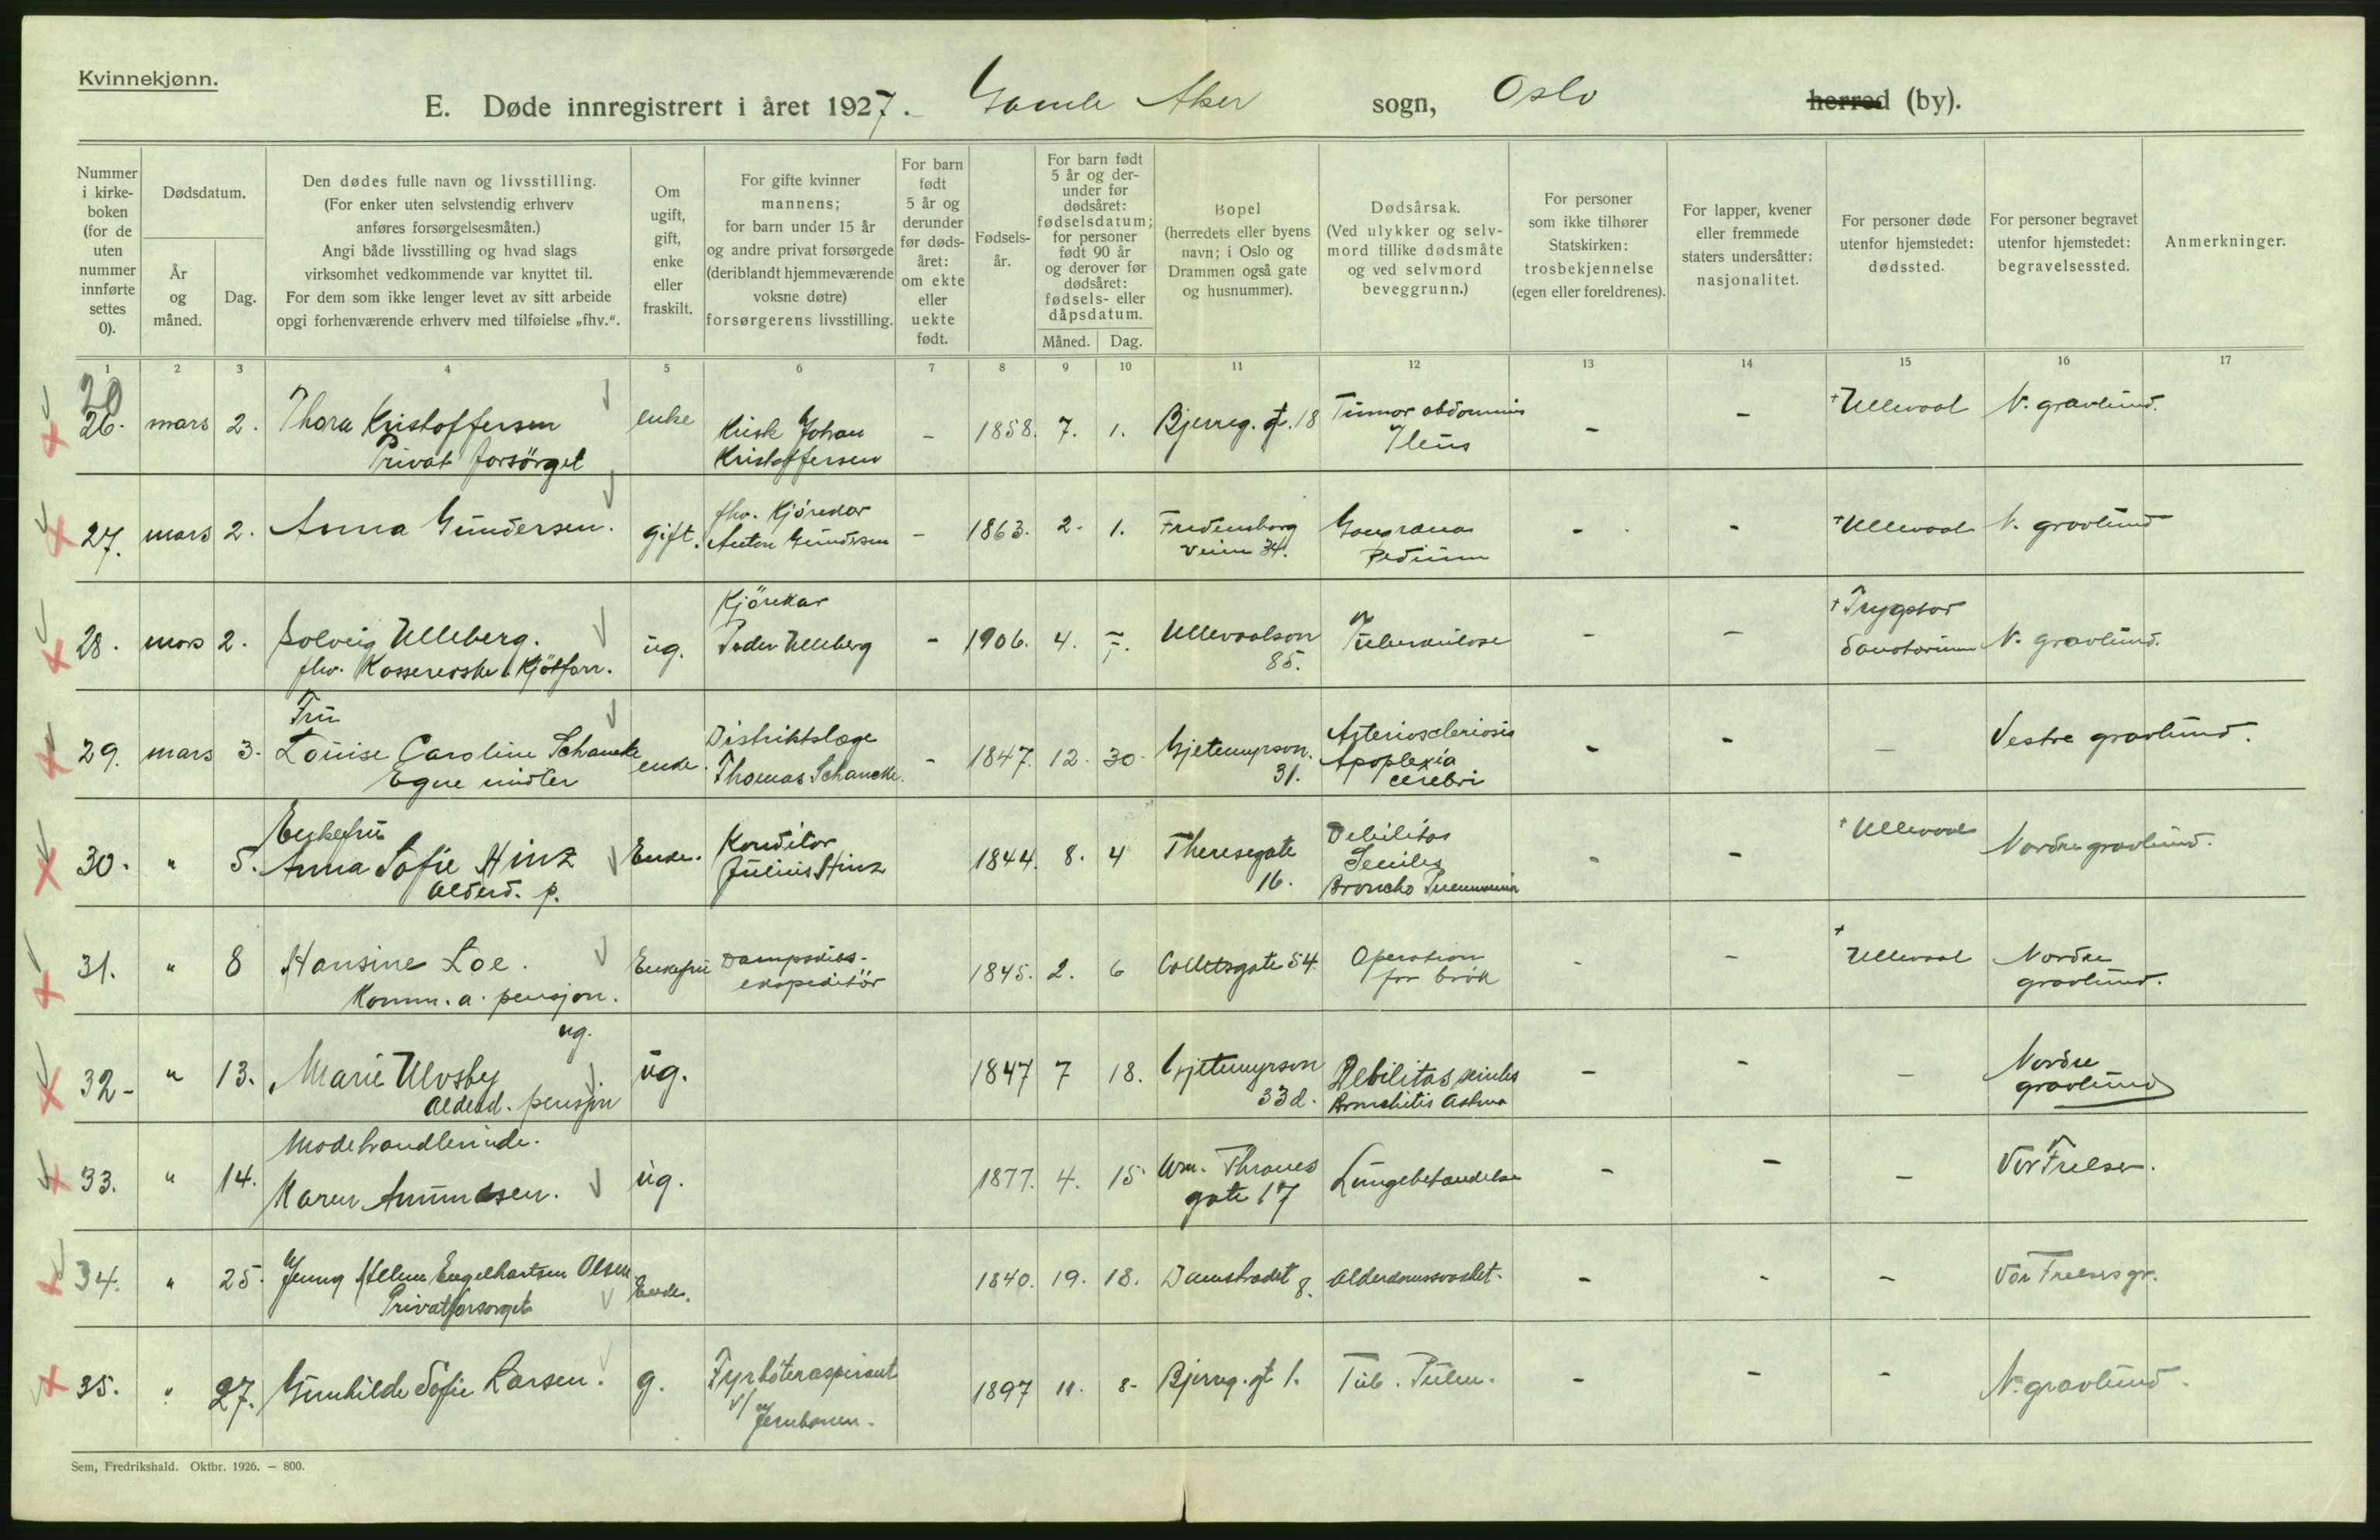 Kvinnekjønn.
E. Døde innregistrert i året 1927. Gamle Aker sogn, Oslo herred (by).
Nummer i kirke-boken (for de uten nummer innførte settes 0).
Dødsdatum.
År og måned.
Dag.
Den dødes fulle navn og livsstilling.
(For enker uten selvstendig erhverv
anføres forsørgelsesmåten.)
Angi både livsstilling og hvad slags
virksomhet vedkommende var knyttet til.
For dem som ikke lenger levet av sitt arbeide
opgi forhenværende erhverv med tilføielse „fhv.“.
Om ugift, gift, enke eller fraskilt.
For gifte kvinner
mannens;
for barn under 15 år
og andre privat forsørgede
(deriblandt hjemmeværende
voksne døtre)
forsørgerens livsstilling.
For barn født 5 år og derunder før døds-året: om ekte eller uekte født.
Fødsels-år.
For barn født 5 år og der-under før dødsåret: fødselsdatum; for personer født 90 år og derover før dødsåret: fødsels- eller dåpsdatum.
Måned. Dag.
Bopel
(herredets eller byens
navn; i Oslo og
Drammen også gate
og husnummer).
Dødsårsak.
(Ved ulykker og selv-
mord tillike dødsmåte
og ved selvmord
beveggrunn.)
For personer
som ikke tilhører
Statskirken:
trosbekjennelse
(egen eller foreldrenes).
For lapper, kvener
eller fremmede
staters undersåtter:
nasjonalitet.
For personer døde
utenfor hjemstedet:
dødssted.
For personer begravet
utenfor hjemstedet:
begravelsessted.
Anmerkninger.
1 2 3 4 5 6 7 8 9 10 11 12 13 14 15 16 17
20
26. mars 2. Thora Kristoffersen enke Krisk Johan - 1858. 7. 1. Bjerreg. gt. 18 Tumor abdominis - - + Ullevaal N. gravlund.
Privat forsörget Kristoffersen Ileus
27. mars 2. Anna Gundersen. gift. fhv. Kjörekar - 1863. 2. 1. Fredensborg Gangræna - - + Ullevaal N. gravlund
Anton Gundersen Veien 34. Pedium
28. mars 2. Solveig Ulleberg. ug. Kjörekar - 1906. 4. Ullevaalsvn Tuberkulose - - + Trygstad N. gravlund.
fhv. Kassererske i Kjötforr. Peder Ulleberg 85. Sanatorium
Fru
29. mars 3. Louise Caroline Schancke enke. Distriktslæge - 1847. 12. 30. Gjetemyrsvn. Arterioscleriosis - - - Vestre gravlund.
Egne midler Thomas Schancke. 31. Apoplexia
cerebri
Enkefru
30. " 5. Anna Sofie Hinz Enke. Konditor 1844. 8. 4 Theresegate Debilitas - - + Ullevaal Nordre gravlund.
Alderd. p. Julius Hinz 16. Seniles
Broncho Pneumonia
31. " 8 Hansine Loe. Enkefru Dampskibs- 1845. 2. 6 Colletsgate 54. Operation - - + Ullevaal Nordre
Komm. a. pensjon. ekspeditör for brök gravlund.
ug.
32- " 13. Marie Ulvsby ug. 1847 7 18. Gjetemyrsvn Debilitas seniles - - - Nordre
Alderd. pensjon 33d. Bronchitis Astma gravlund
Modehandlerinde.
33. " 14. Karen Amundsen. ug. 1877. 4. 15 Wm. Thranes Lungebetændelse - - - Vor Frelser.
gate 17
34. " 25. Jenny Helene Engelhartsen Olsen Enke. 1840. 19. 18. Damstradet 8. Alderdomssvakhet. - - - Vor Frelsers gr.
Privat forsorget
35. " 27. Gunhilde Sofie Larsen. g. Fyrböteraspirant 1897 11. 8- Bjerreg. gt 1. Tub. Pulm. - - - N. gravlund.
v/ Jernbanen.
Sem, Fredrikshald. Oktbr. 1926. — 800.